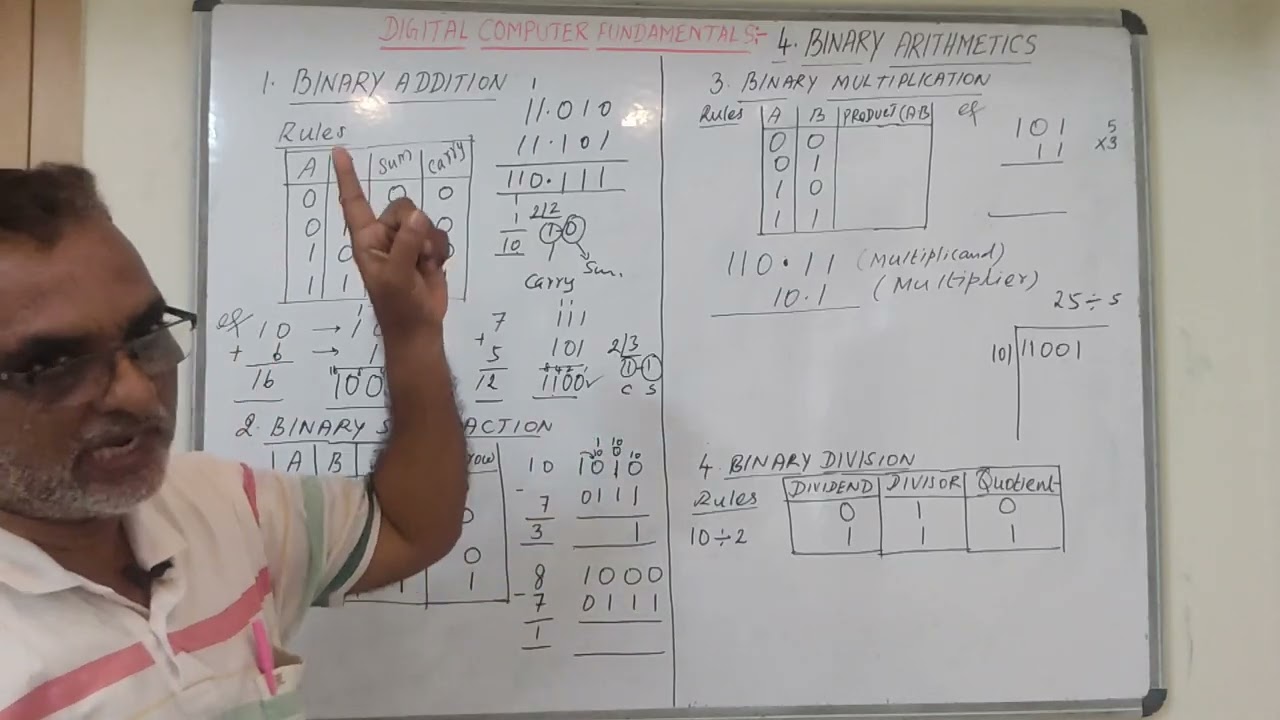 DIGITAL COMPUTER FUNDAMENTALS:- 4. BINARY ARITHMETICS
1. BINARY ADDITION
Rules
A Sum Carry
0 0 0
0 1 0
1 0
1 1
1
11.010
11.101
110.111
1
1
10
2/2
1 0
Sum.
Carry
eg 10 → 10
+ 6 → 1
16
7
+ 5
12
111
111
101
1100✓
2/3
1 1
C S
2. BINARY ACTION
A B row
0
0
1 1 1
10
- 7
3
1 10
10 0 10
1010
0111
1
8
- 7
1
1000
0111
3. BINARY MULTIPLICATION
Rules
A B PRODUCT(AB
0 0
0 1
1 0
1 1
eg
101
11
5
x3
110.11 (Multiplicand)
10.1 (Multiplier)
25÷5
101 11001
4. BINARY DIVISION
Rules
DIVIDEND DIVISOR Quotient
0 1 0
1 1 1
10÷2